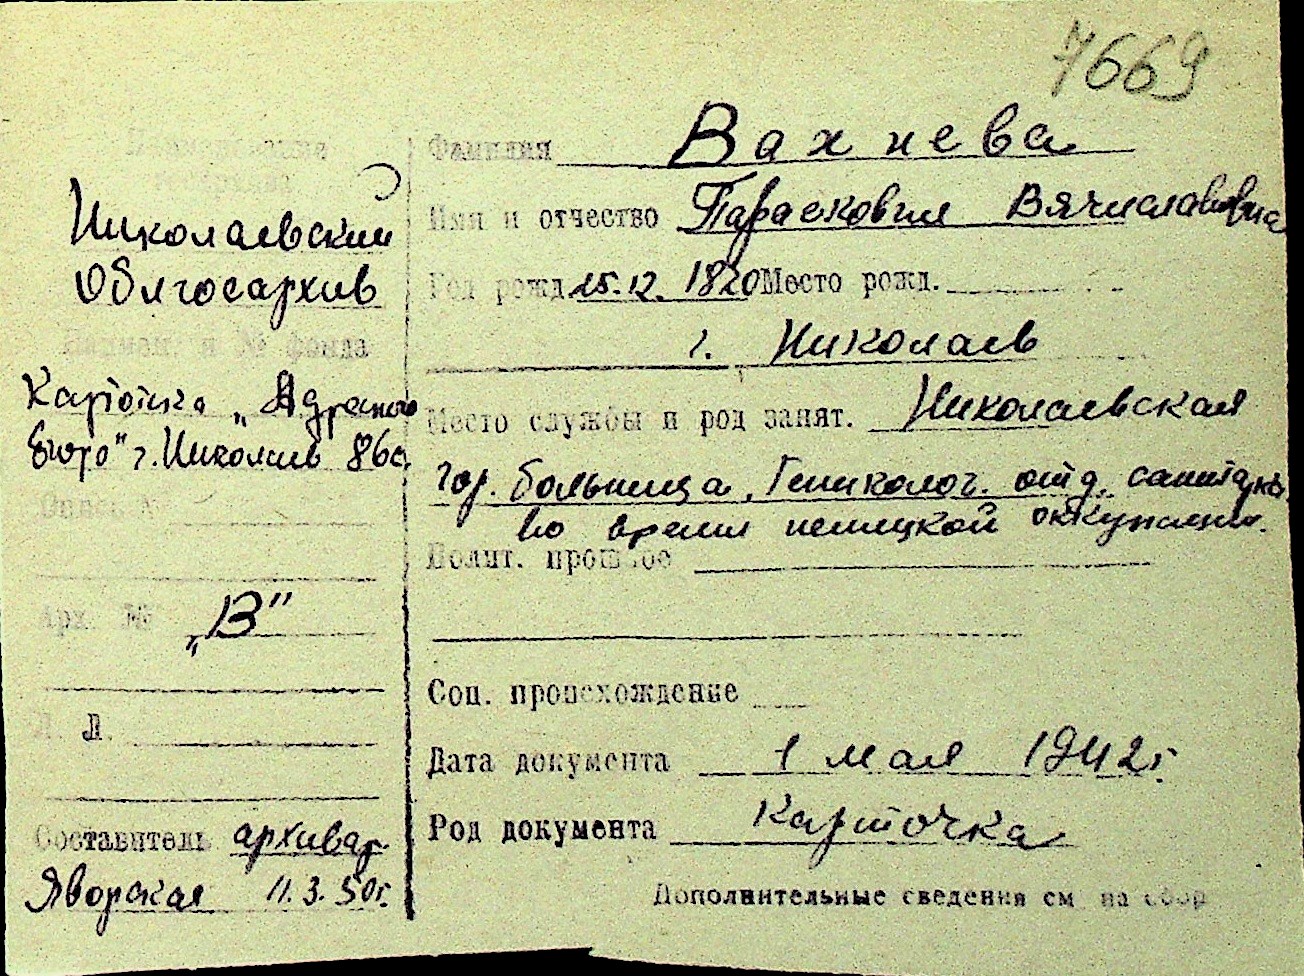 7669
Николаевский
Облгосархив
Название и № фонда
Картотека „Адресного
бюро" г. Николаев 86с.
Опись №
Арх. №
„В"
Л. Л.
Составитель архивар.
Яворская 11.3.50г.
Фамилия Вахнева
Имя и отчество Парасковия Вячиславовна
Год рожд 15.12. 1820 Место рожд.
г. Николаев
Место службы и род занят. Николаевская
гор. больница, Гениколог. отд.
во время немецкой оккупации.
Полит. прошлое
Соц. происхождение
Дата документа 1 мая 1942г.
Род документа Карточка
Дополнительные сведения см на обор